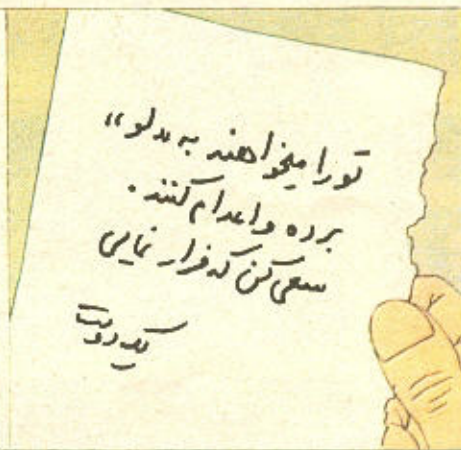 تورا میخواهند به «لو»
برده و اعدام کنند.
سعی کن که فرار نمایی
یک دوست